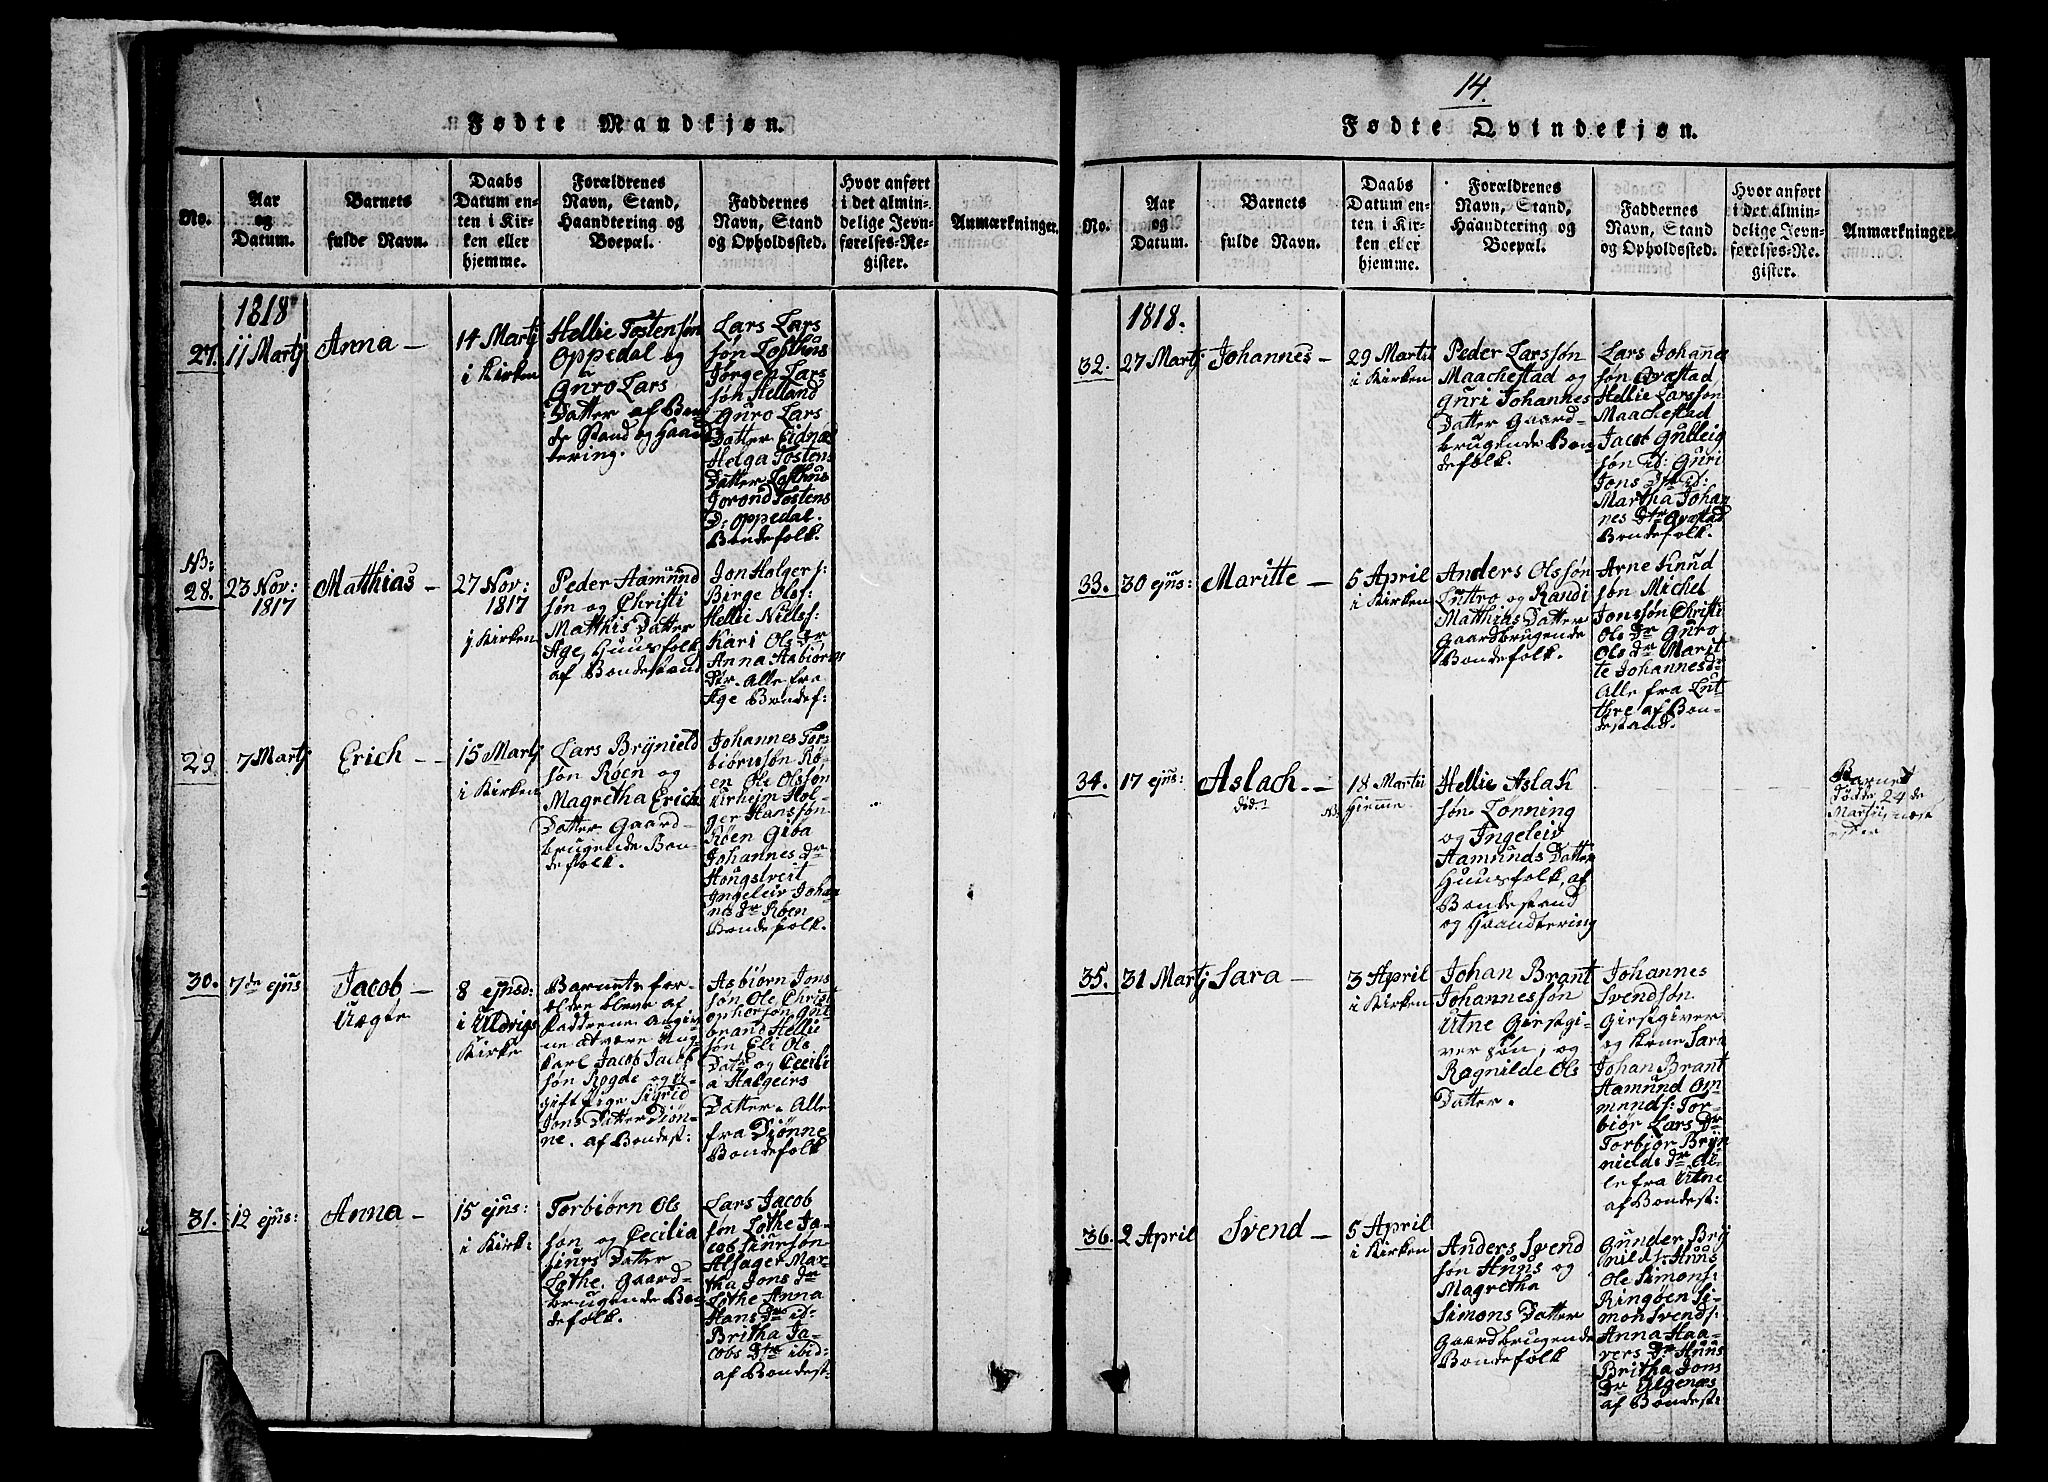 Fødte Mandkjøn.
No.
Aar
og
Datum.
Barnets
fulde Navn.
Daabs
Datum en-
ten i Kir-
ken eller
hjemme.
Forældrenes
Navn, Stand,
Haandtering og
Boepæl.
Faddernes
Navn, Stand
og Opholdssted.
Hvor anført
i det almin-
delige Jevn-
førelses-Re-
gister.
Anmærkninger.
1818
27.
11 Martj
Anna –
14 Martj
i Kirken
Hellie Tostensøn
Oppedal og
Guro Lars
Datter af Bon
de Stand og Haand
tering.
Lars Lars
søn Lofthus
Jørgen Lars
søn Helland
Guro Lars
Datter Eidnæs
Helga Tostens
Datter Lofthus
Jorond Tostens
D: Oppedal.
Bondefolk.
NB:
28.
23 Nov:
1817
Matthias –
27 Nov:
1817
i Kirken
Peder Aamund
søn og Christi
Matthis Datter
Age, Huusfolk
af Bondestand
Jon Halgers:
Birge Olsf:
Hellie Nillsf:
Kari Ols dr
Anna Asbiørns
dtr. Alle fra
Age Bondef:
29.
7 Martj
Erich –
15 Martj
i Kirken
Lars Brynield
søn Røen og
Magretha Erich
Datter Gaard-
brugende Bon-
defolk.
Johannes Tor-
biørnsøn Rø-
en Ole Olssøn
Urheim Hol-
ger Hanssøn
Røen Giba
Johannes dr
Hougstveit
Ingeleiv Johan
nes dr Røen
Bondefolk.
30.
7de ejus
Jacob –
Uægte
8 ejusd:
i Uldrigs
Kirke
Barnets for-
ældre bleve af
Fadderne Angiv-
ne at være Ung-
karl Jacob Jacob
søn Rogde og u-
gift Pige Sigrid
Jons Datter Diøn-
ne. af Bondest:
Asbiørn Jons
søn Ole Christ
ophersøn Gut-
brand Hellie
søn Eli Ols
Datr og Cecili
a Halgeirs
Datter. Alle
fra Diønne
Bondefolk
31.
12 ejus:
Anna –
15 ejus:
i Kirk:
Torbiørn Ols
søn og Cecilia
Siurs Datter
Lothe. Gaard-
brugende Bon
defolk.
Lars Jacob
søn Lothe Ja-
cob Siursøn
Alsager Mar-
tha Jons dr
Lothe Anna
Hans Dr ib:
Britha Ja-
cobs Dtr ibid:
af Bondest:
14.
Fødte Qvindekjøn.
No.
Aar
og
Datum.
Barnets
fulde Navn.
Daabs
Datum en-
ten i Kir-
ken eller
hjemme.
Forældrenes
Navn, Stand,
Haandtering og
Boepæl.
Faddernes
Navn, Stand
og Opholdssted.
Hvor anført
i det almin-
delige Jevn-
førelses-Re-
gister.
Anmærkninger.
1818.
32.
27 Martj
Johannes –
29 Martii
i Kirken
Peder Larssøn
Maachestad og
Guri Johannes
Datter Gaard-
brugende Bon-
defolk.
Lars Johanne
søn Qvæstad
Hellie Larssøn
Maachestad
Jacob Gulleig
søn ib: Guri
Jons Dtr ib:
Martha Johan
nes Dtr Qvæstad
Bondefolk.
33.
30 ejus:
Maritte –
5 April
i Kirken
Anders Olssøn
Luttro og Randi
Matthias Datter
Gaardbrugende
Bondefolk.
Arne Knud
søn Michel
Jonssøn Christi
Ols Dr Guro
Ols dr Marit
te Johannesdr
Alle fra Lut
thre af Bon-
destand.
34.
17 ejus:
Aslach. –
död.
18 Martii
NB. Hiemme
Hellie Aslak
søn Lonning
og Ingeleiv
Aamunds Datter
Huusfolk, af
Bondestand
og Haandtering
Barnet
Døde 24 de
Martii, næst
efter
35.
31 Martj
Sara –
3 April
i Kirken
Johan Brant
Johannessøn
Utne Giestgi-
ver søn, og
Ragnilde Ols
Datter.
Johannes
Svendsøn
Giestgiver
og Kone Sara
Johan Brant
Aamund Om-
munds: Tor-
biør Lars Dr
Torbiør Bryn
nields dr Al-
le fra Utne
af Bondest:
36.
2 April
Svend –
5 April
i Kirken
Anders Svend
søn Huus og
Magretha
Simons Datter
Gaardbrugende
Bondefolk
Gunder Bry
nilds: Huus
Ole Simons:
Ringøen Si-
mon Svends:
Anna Haa-
vers Dr Huus
Britha Jons
Dr Ulgenæs
af Bondest: